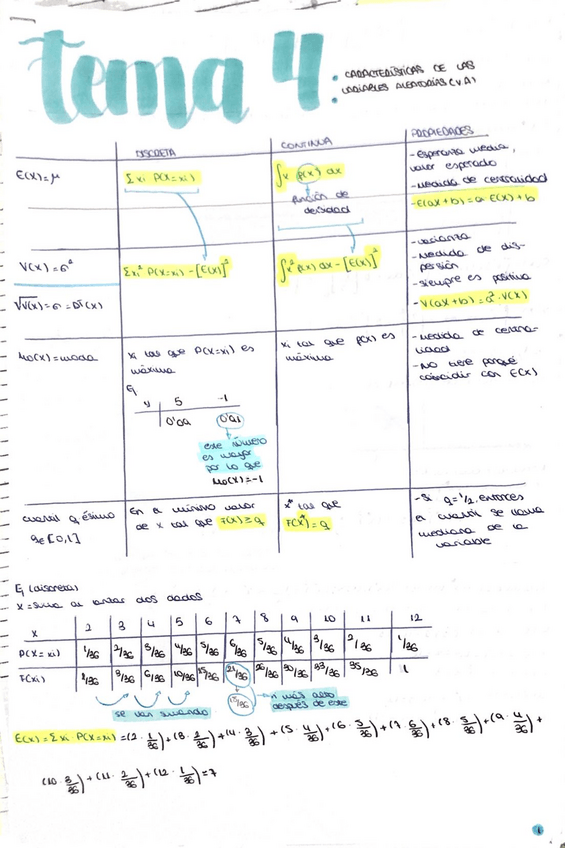 tema 4:
CARACTERÍSTICAS DE LAS
VARIABLES ALEATORIAS (VA)
DISCRETA
CONTINUA
PROPIEDADES
E(X)=μ
Σxi P(X=xi)
∫x f(x) dx
función de
densidad
-esperanza media,
valor esperado
-medida de centralidad
-E(aX+b)=a·E(X)+b
V(X)=σ²
√V(X)=σ=DT(X)
Σxi² P(X=xi)-[E(X)]²
∫x² f(x) dx-[E(X)]²
-varianza
-medida de dis-
persión
-siempre es positiva
-V(aX+b)=a²·V(X)
Mo(X)=moda
xi tal que P(X=xi) es
máxima
Ej
5 -1
este número
es mayor
por lo que
Mo(X)=-1
xi tal que f(x) es
máxima
-medida de centra-
lidad
-NO tiene porqué
coincidir con E(X)
cuantil q ésimo
qε[0,1]
Es el mínimo valor
de x tal que F(X)≥q
x* tal que
F(X*)=q
-Si q=1/2, entonces
el cuantil se llama
mediana de la
variable
Ej (discreta)
X=suma al lanzar dos dados
X 2 3 4 5 6 7 8 9 10 11 12
P(X=xi) 1/36 2/36 3/36 4/36 5/36 6/36 5/36 4/36 3/36 2/36 1/36
F(xi) 1/36 3/36 6/36 10/36 15/36 21/36 26/36 30/36 33/36 35/36 1
se van sumando
n más alto
después de este
E(X)=Σxi·P(X=xi)=(2·1/36)+(3·2/36)+(4·3/36)+(5·4/36)+(6·5/36)+(7·6/36)+(8·5/36)+(9·4/36)+
(10·3/36)+(11·2/36)+(12·1/36)=7
1